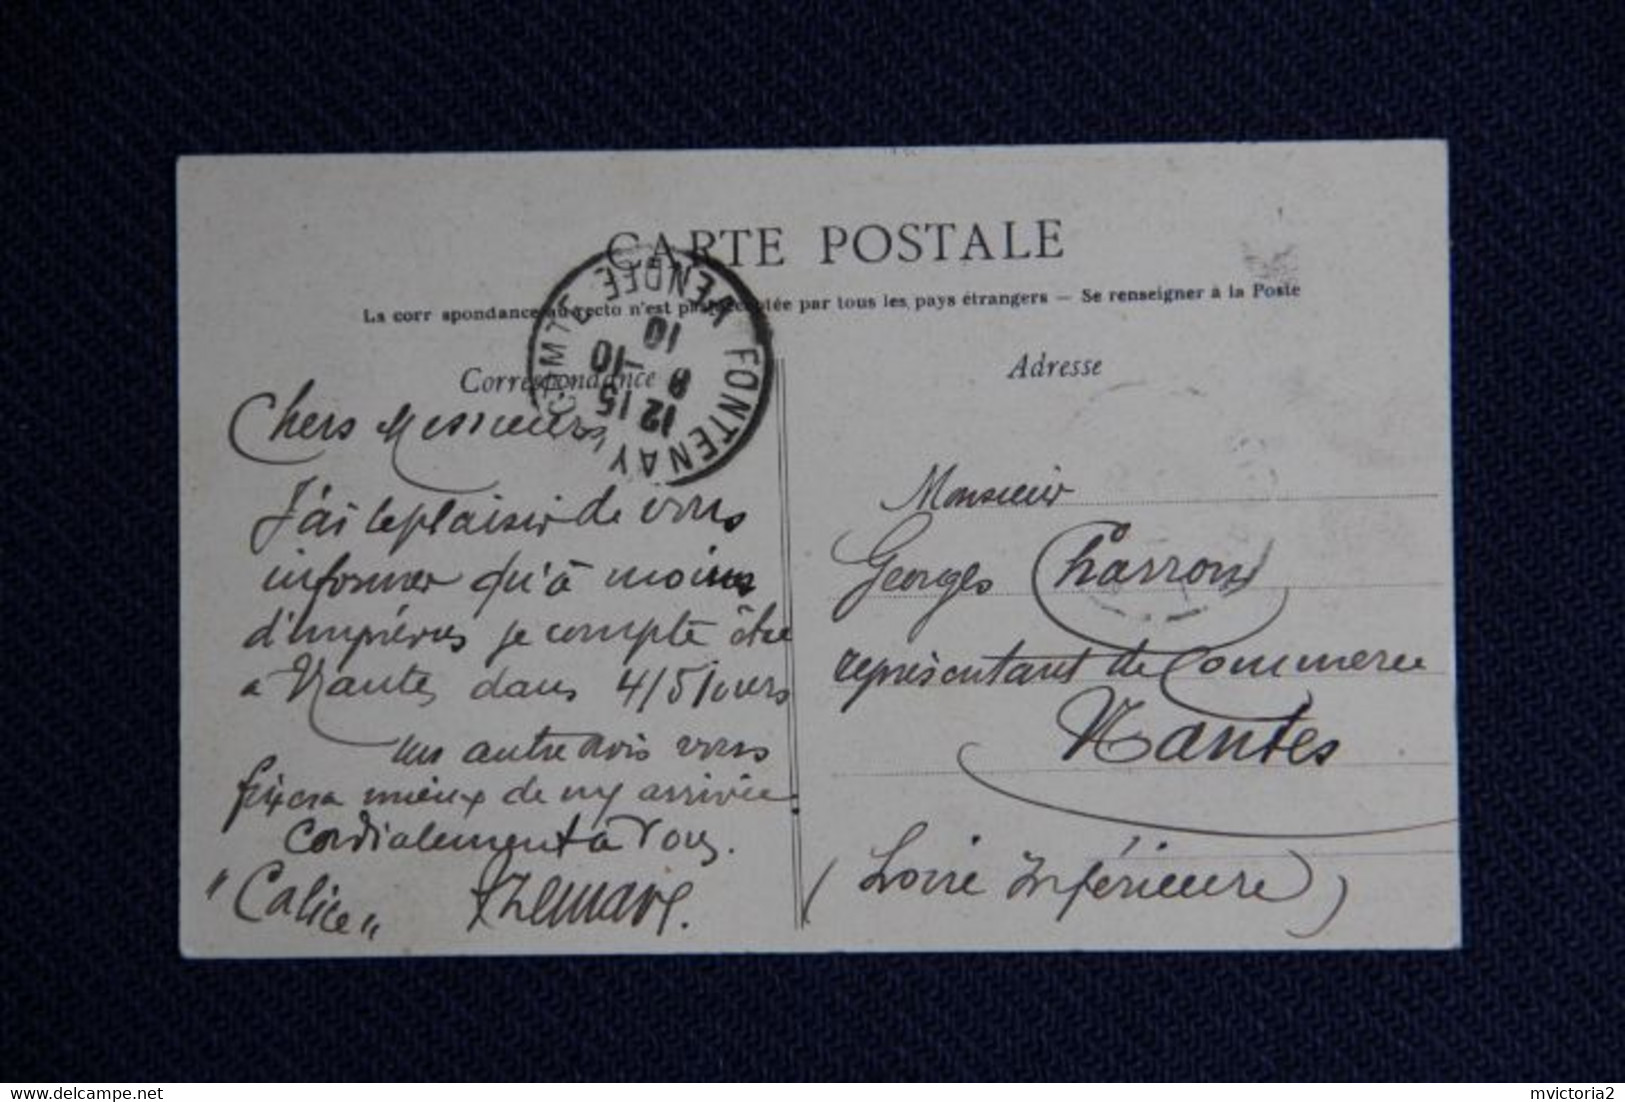 CARTE POSTALE
La corr spondance au recto n'est pas acceptée par tous les pays étrangers — Se renseigner à la Poste
Correspondance
Adresse
FONTENAY COMTE VENDÉE
12 15
8 -10
10
Chers Messieurs,
J'ai le plaisir de vous
informer qu'à moins
d'imprévus je compte être
a Nantes dans 4/5 jours
un autre avis vous
fixera mieux de my arrivée.
Cordialement à vous.
"Calice"
Monsieur
Georges Charron
représentant de Commerce
Nantes
(Loire Inférieure)
delcampe.net
mvictoria2